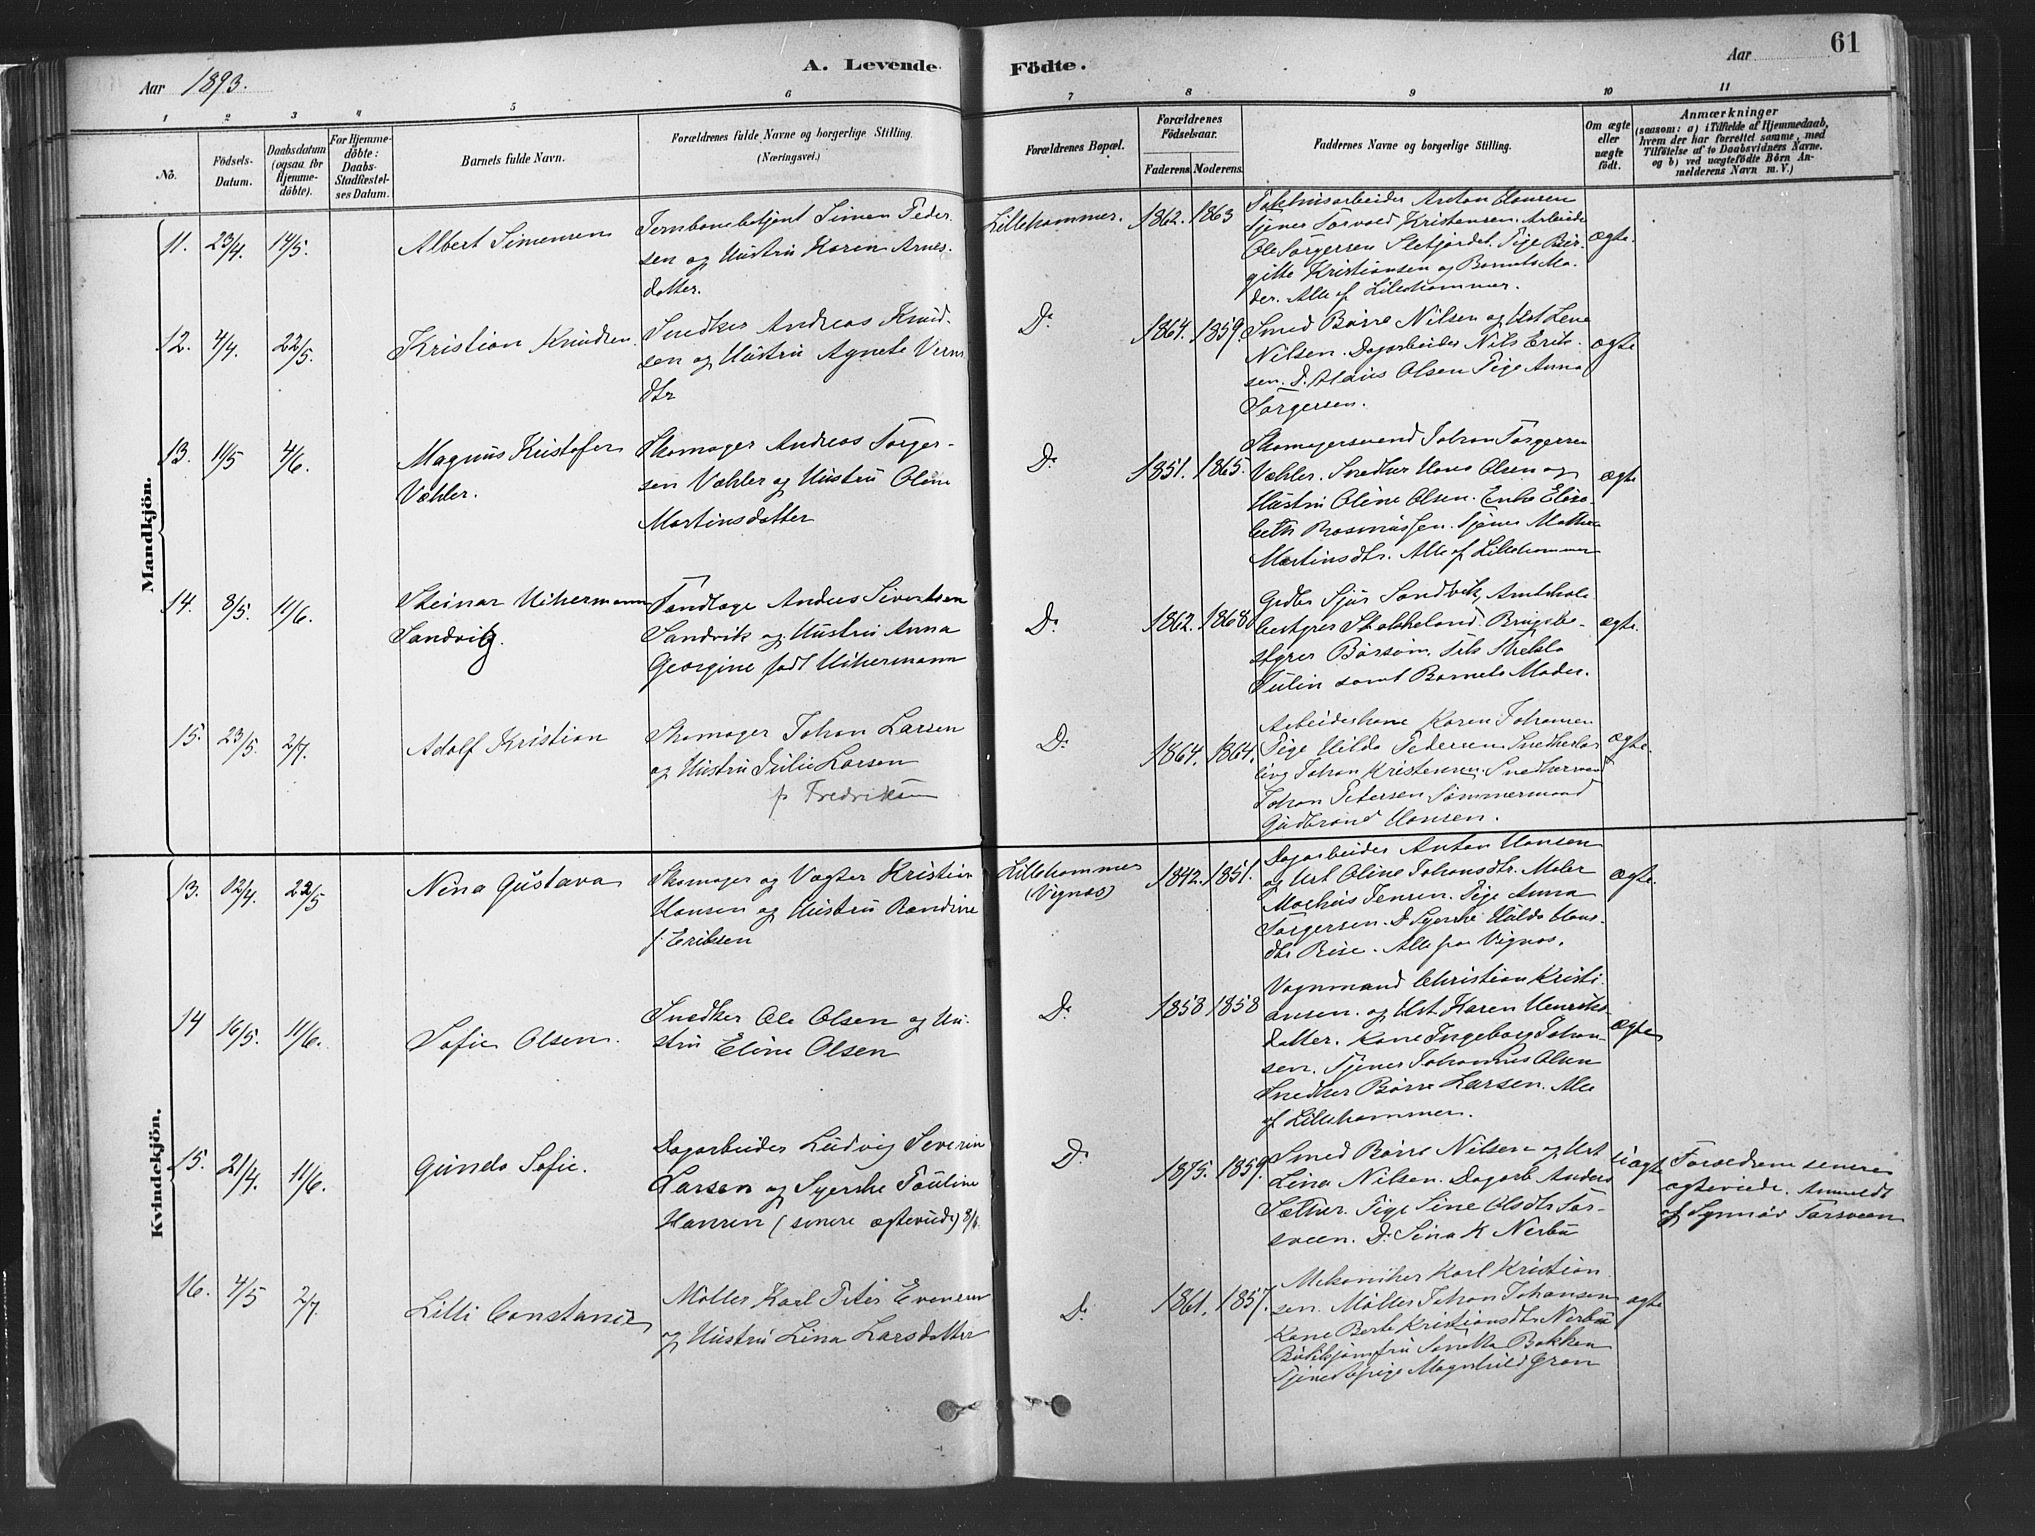 Aar 1893.
A. Levende Födte.
Aar
61
1 2 3 4 5 6 7 8 9 10 11
No.
Födsels-Datum.
Daabsdatum (ogsaa for Hjemme-döbte).
For Hjemme-döbte: Daabs-Stadfæstel-ses Datum.
Barnets fulde Navn.
Forældrenes fulde Navne og borgerlige Stilling. (Næringsvei.)
Forældrenes Bopæl.
Forældrenes Födselsaar.
Faderens. Moderens.
Faddernes Navne og borgerlige Stilling.
Om ægte eller uægte födt.
Anmærkninger
(saasom: a) i Tilfælde af Hjemmedaab,
hvem der har forrettet samme, med
Tilföielse af to Daabsvidners Navne.
og b) ved uægtefödte Börn An-
melderens Navn m. V.)
Mandkjön.
11. 23/4 14/5 Albert Simensen
Jernbanebetjent Simen Peder-
sen og Hustru Karen Arnes-
datter.
Lillehammer. 1862. 1863
Anton Hansen
Tjener Torvald Kristensen. Arbeider
Ole Torgersen Sletjordet. Pige Bir-
gitte Kristiansen og Barnets Mo-
der. Alle af Lillehammer.
ægte.
12. 4/4 22/5. Kristian Knudsen
Snedker Andreas Knud-
sen og Hustru Agnete
dtr
Do 1864. 1859
Smed Börre Nilsen og Hst Lene
Nilsen. Dagarbeider Nils Erik-
sen. Do Olaus Olsen Pige Anna
Torgersen.
ægte
13. 11/5 4/6. Magnus Kristofer
Væhler.
Skomager Andreas Torger-
sen Væhler og Hustru Oline
Martinsdatter
Do 1851. 1865.
Skomagersvend Johan Torgersen
Væhler. Snedker Hans Olsen og
Hustru Oline Olsen. Enke Elisa-
beth Rasmussen. Tjener Mathea
Martinsdtr. Alle af Lillehammer
ægte
14. 8/5. 11/6. Steinar Uchermann
Sandvig.
Tandlæge Anders Sivertsen
Sandvik og Hustru Anna
Georgine født Uchermann
Do 1862. 1868
Sjur Sandvik, Amtskole-
bestyrer Stokkeland. Brugsbe-
styrer Börsöm. Frk Thekla
Tulin samt Barnets Moder.
ægte.
15. 23/5. 2/7. Adolf Kristian
Skomager Johan Larsen
og Hustru Julie Larsen
f. Fredriksen
Do 1864. 1864.
Arbeiderkone Karen Johansen
Pige Hilda Pedersen Snedkerlær-
ling Johan Kristensen. Snedkersvend
Johan Petersen Tømmermand
Gudbrand Hansen.
ægte.
Kvindekjön.
13. 12/4. 22/5 Nina Gustava
Skomager og Vægter Kristian
Hansen og Hustru Randine
f. Eriksen
Lillehammer
(Vignæs) 1842. 1851.
Dagarbeider Anton Hansen
og Hst Oline Johansdtr. Maler
Mathias Jensen. Pige Anna
Torgersen. Do Syerske Hulda Hans-
dtr Rise. Alle fra Vignæs.
ægte.
14 16/5. 11/6. Sofie Olsen.
Snedker Ole Olsen og Hu-
stru Eline Olsen
Do 1858 1858
Vognmand Christian Kristi-
ansen. og Hst. Karen Henriks-
datter. Kone Ingeborg Johan-
sen. Tjener Johannes Olsen
Snedker Börre Larsen. Alle
af Lillehammer.
ægte
15. 21/4. 11/6. Gunda Sofie.
Dagarbeider Ludvig Severin
Larsen og Syerske Pauline
Hansen (senere ægteviede) 8/6.
Do 1875. 1859.
Smed Börre Nilsen og Hst
Lina Nilsen. Dagarb Anders
Sæther. Pige Sine Olsdtr Tor-
sveen. Do Sina K Nerbü
uægte
Forældrene senere
ægteviede. Anmeldt
af Synnöv Torsveen
16. 4/5 2/7. Lilli Constance
Möller Karl Peter Evensen
og Hustru Lina Larsdatter
Do 1861. 1857.
Mekaniker Karl Kristian-
sen. Möller Johan Johansen
Kone Berte Kristiansdtr Nerbü
Butikjomfru Bakken
Tjenestepige Magnhild Gran
ægte